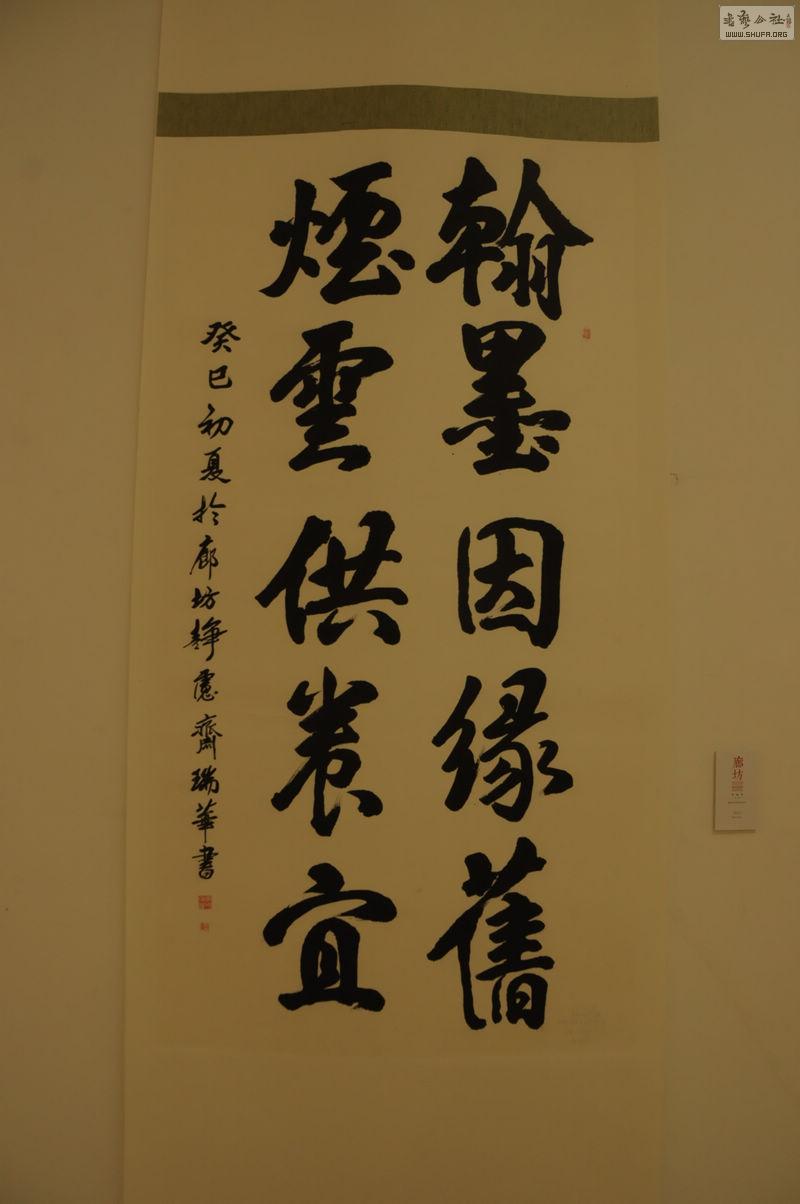 翰墨因缘舊
煙雲供養宜
癸巳初夏於廊坊靜慮齋瑞華書
廊坊
書藝公社
WWW.SHUFA.ORG